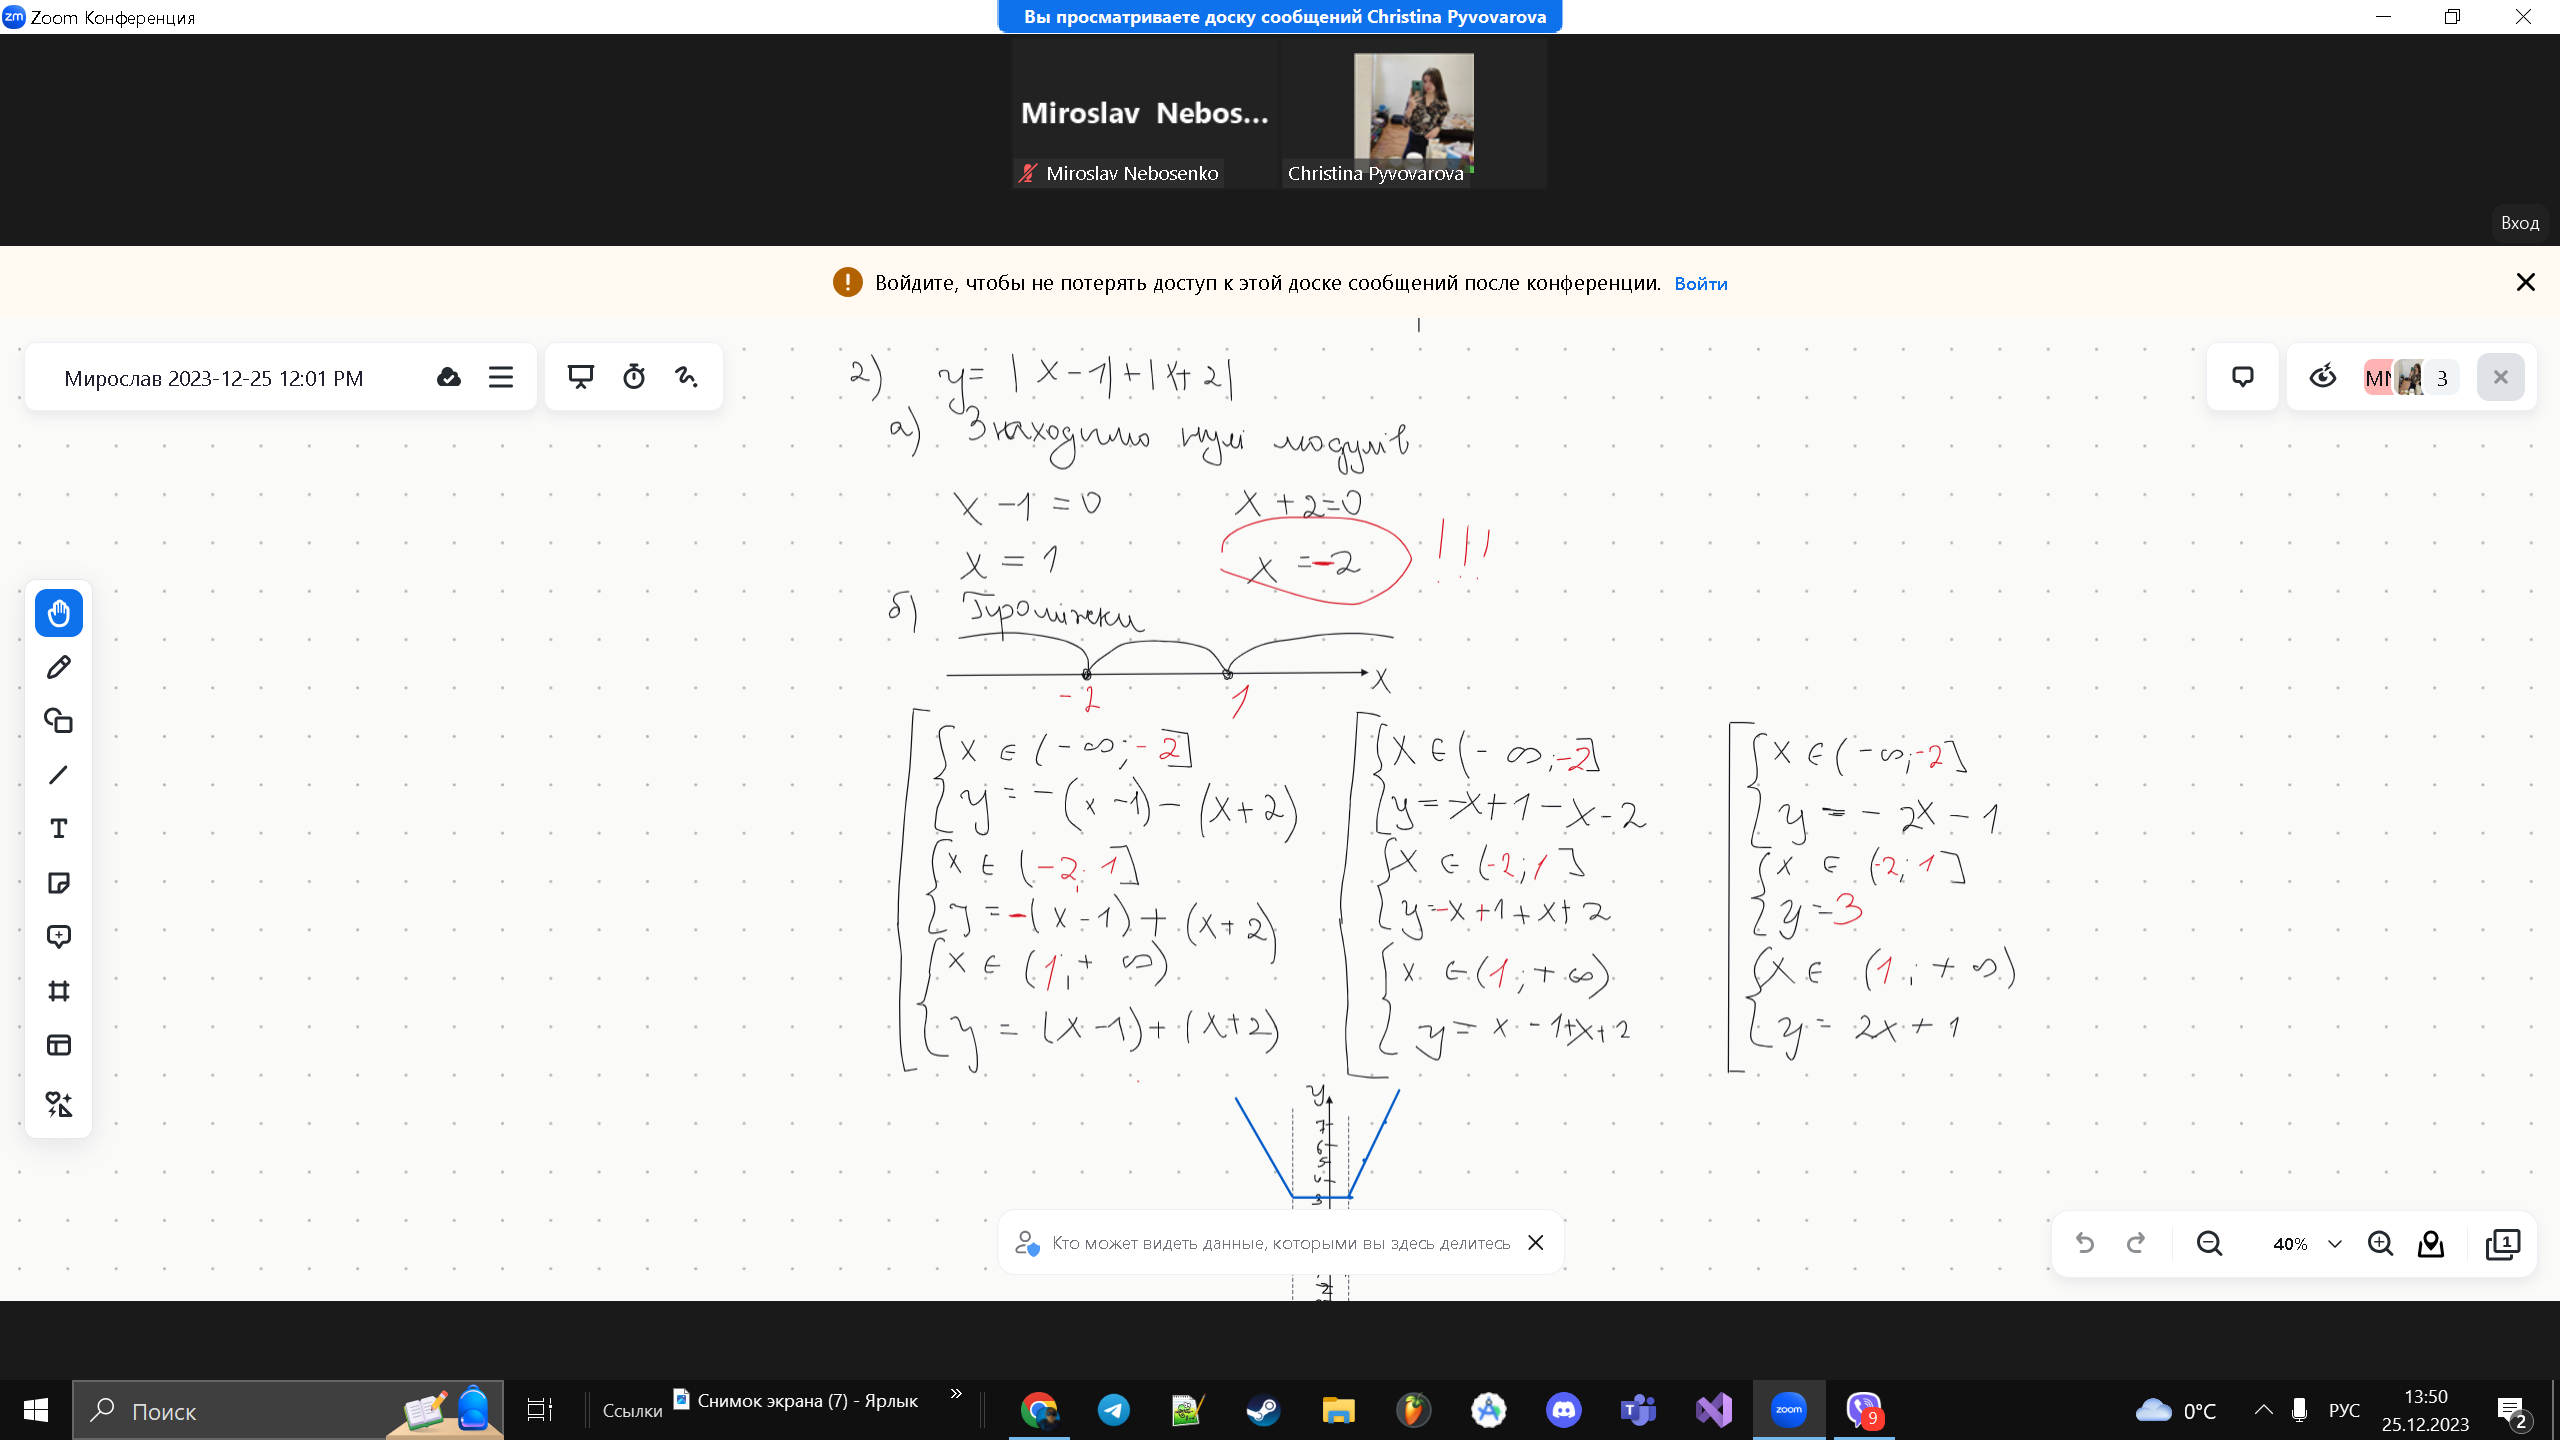 Zoom Конференция
Вы просматриваете доску сообщений Christina Pyvovarova
Miroslav Nebos...
Miroslav Nebosenko
Christina Pyvovarova
Вход
Войдите, чтобы не потерять доступ к этой доске сообщений после конференции. Войти
Мирослав 2023-12-25 12:01 PM
MN
3
2) y = |x-1|+|x+2|
а) Знаходимо нулі модулів
x-1=0 x+2=0
x=1 x=-2 !!!
б) Проміжки
-2 1 x
x ∈ (-∞; -2] x ∈ (-∞; -2] x ∈ (-∞; -2]
y = -(x-1)-(x+2) y = -x+1-x-2 y = -2x-1
x ∈ (-2; 1] x ∈ (-2; 1] x ∈ (-2; 1]
y = -(x-1)+(x+2) y = -x+1+x+2 y = 3
x ∈ (1; +∞) x ∈ (1; +∞) x ∈ (1; +∞)
y = (x-1)+(x+2) y = x-1+x+2 y = 2x+1
y
7
6
5
4
3
Кто может видеть данные, которыми вы здесь делитесь
40%
1
Поиск
Ссылки
Снимок экрана (7) - Ярлык
zoom
9
0°C
РУС
13:50
25.12.2023
2